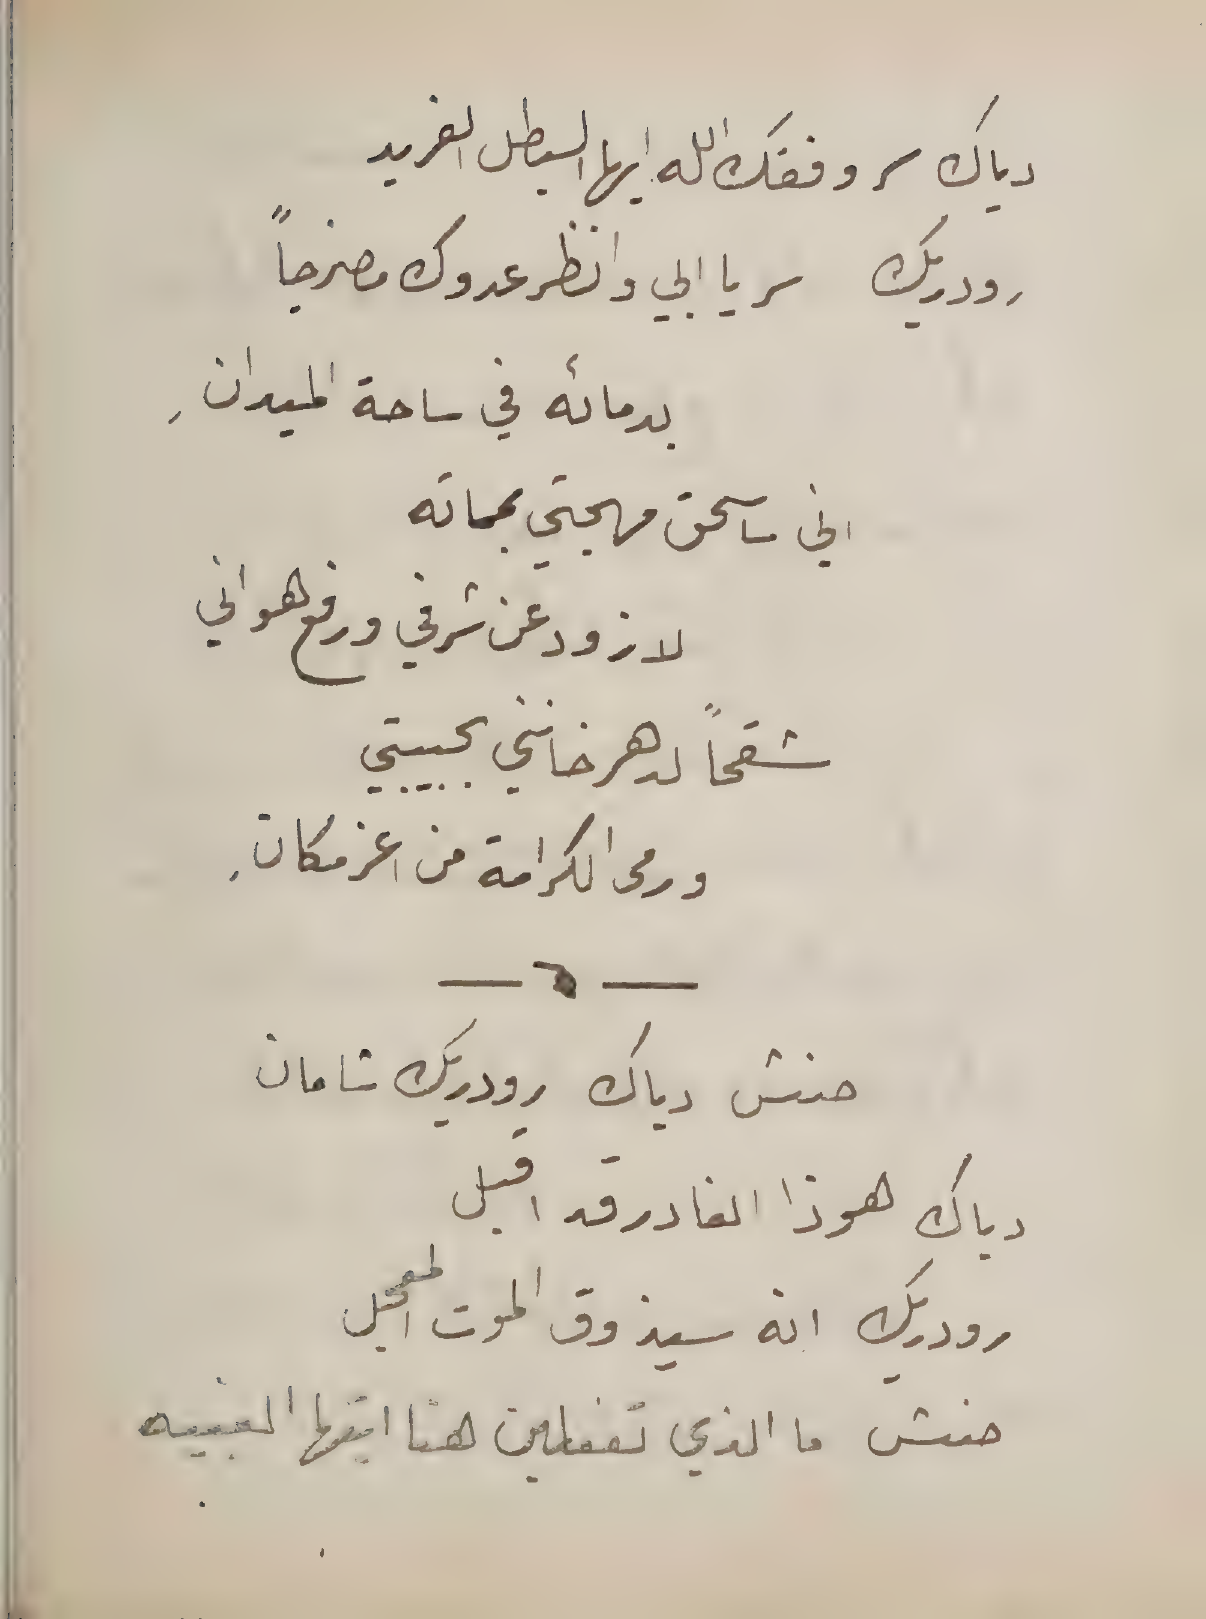 دياك سر وفقك الله ايها البطل الفريد
رودريك سر يا ابي وانظر عدوك مضرجاً
بدمائه في ساحة الميدان
اني ساسحق مهجتي بمماته
لازود عن شرفي ورفع هواني
شقحاً لدهر خانني بحبيبتي
ورمى الكرامة من اعز مكان
حنش دياك رودريك شامان
دياك هوذا الغادر قد اقبل
رودريك انه سيذوق الموت المعجل
حنش ما الذي تفعلين هنا ايتها الغبيه